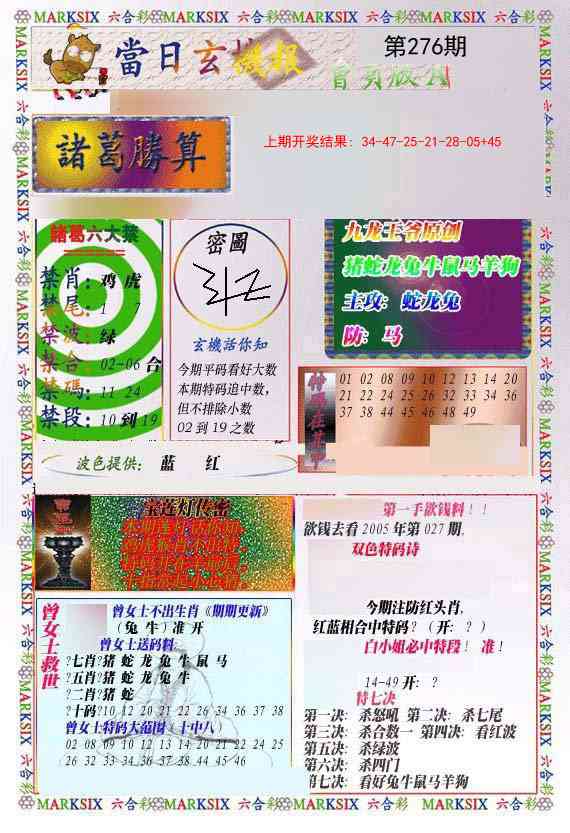 MARKSIX 六合彩 MARKSIX 六合彩 MARKSIX 六合彩 MARKSIX 六合彩 MARKSIX
當日玄機報
第276期
上期开奖结果: 34-47-25-21-28-05+45
諸葛勝算
諸葛六大禁
禁肖: 鸡 虎
禁尾: 1 7
禁波: 绿
禁合: 02-06 合
禁碼: 11 24
禁段: 10 到 19
密圖
玄機活你知
今期平码看好大数
本期特码追中数,
但不排除小数
02 到 19 之数
九龙王爷原创
猪蛇龙兔牛鼠马羊狗
主攻: 蛇龙兔
防: 马
01 02 08 09 10 12 13 14 20
21 22 24 25 26 32 33 34 36
37 38 44 45 46 48 49
波色提供: 蓝 红
宝莲灯传密
第一手欲钱料!!
欲钱去看 2005 年第 027 期,
双色特码诗
今期注防红头肖,
红蓝相合中特码? (开: ? )
白小姐必中特段! 准!
14-49 开: ?
特七决
第一决: 杀怒吼 第二决: 杀七尾
第三决: 杀合数一 第四决: 看红波
第五决: 杀绿波
第六决: 杀四门
第七决: 看好兔牛鼠马羊狗
曾女士救世
曾女士不出生肖《期期更新》
(兔 牛) 准 开
曾女士送码料
?七肖?猪 蛇 龙 兔 牛 鼠 马
?五肖?猪 蛇 龙 兔 牛
?二肖?猪 蛇
?十码?10 12 20 21 22 26 34 36 37 38
曾女士特码大范围(十中八)
02 08 09 10 12 13 19 20 21 22 24 25
26 32 33 34 36 37 38 44 45 46
MARKSIX 六合彩 MARKSIX 六合彩 MARKSIX 六合彩 MARKSIX 六合彩 MARKSIX 六合彩